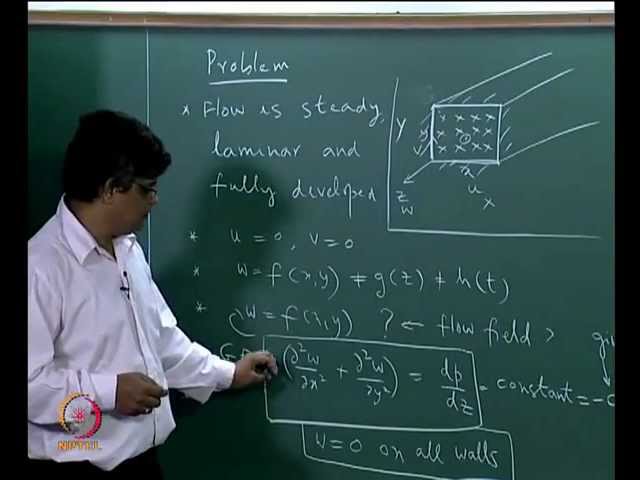 Problem
* Flow is steady,
laminar and
fully developed
* u = 0, v = 0
* w = f(x,y) ≠ g(z) ≠ h(t)
* w = f(x,y) ? ← flow field >
(∂²w/∂x² + ∂²w/∂y²) = dp/dz = constant = -c
w = 0 on all walls
y
y
z
w
x
u
x
NPTEL